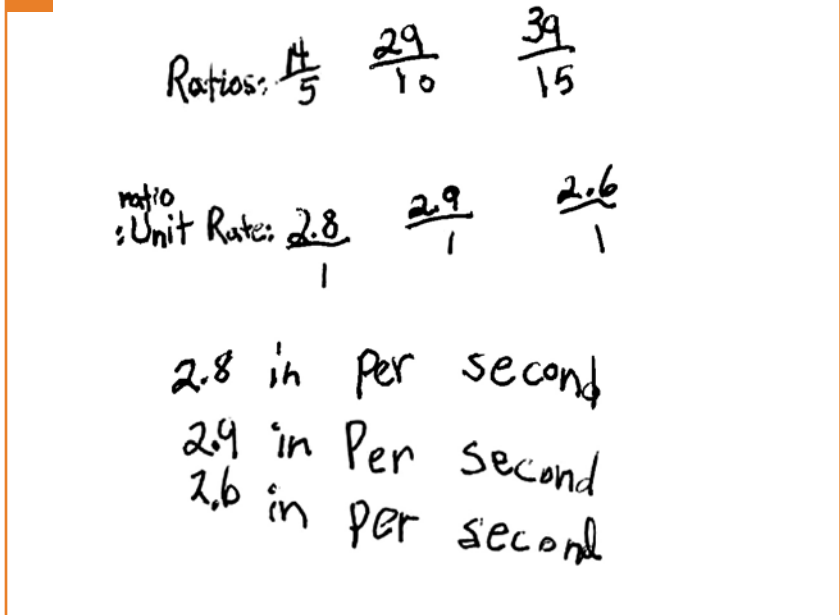 Ratios: 14/5 29/10 39/15
ratio
:Unit Rate: 2.8/1 2.9/1 2.6/1
2.8 in per second
2.9 in Per second
2.6 in per second